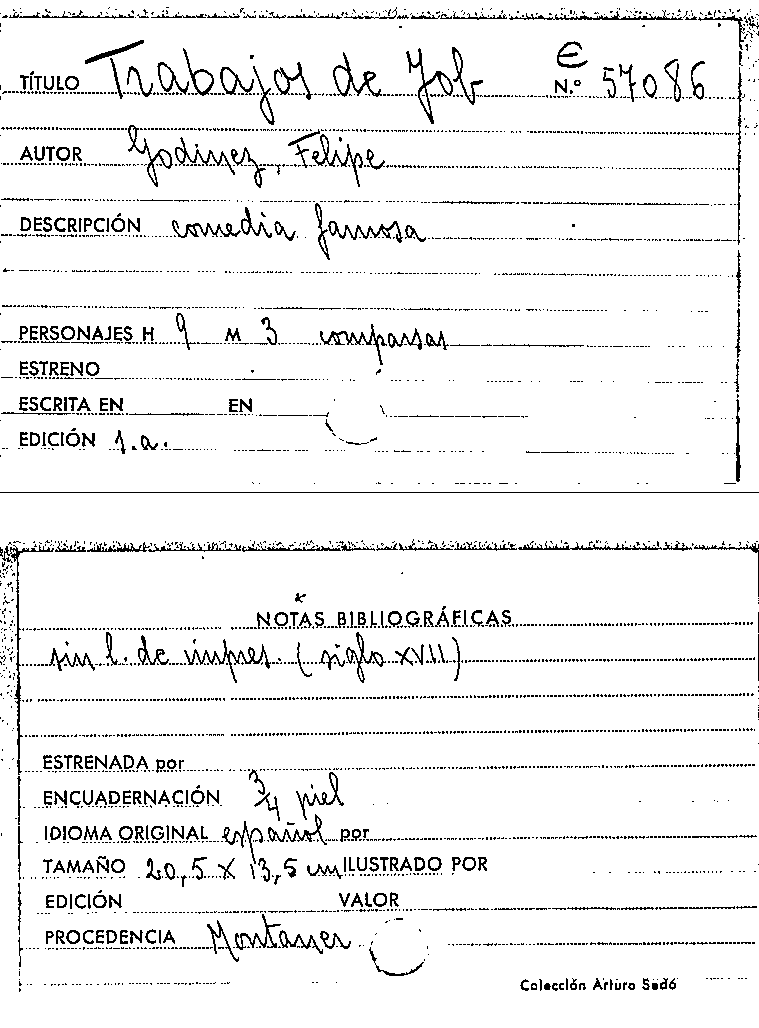 TÍTULO Trabajos de Job E N.º 57086
AUTOR Godinez, Felipe
DESCRIPCIÓN comedia famosa
PERSONAJES H 9 M 3 comparsas
ESTRENO
ESCRITA EN EN
EDICIÓN s.a.
NOTAS BIBLIOGRÁFICAS
sin l. de impres. (siglo XVII)
ESTRENADA por
ENCUADERNACIÓN 3/4 piel
IDIOMA ORIGINAL español por
TAMAÑO 20,5 x 13,5 cm ILUSTRADO POR
EDICIÓN VALOR
PROCEDENCIA Montaner
Colección Arturo Sedó